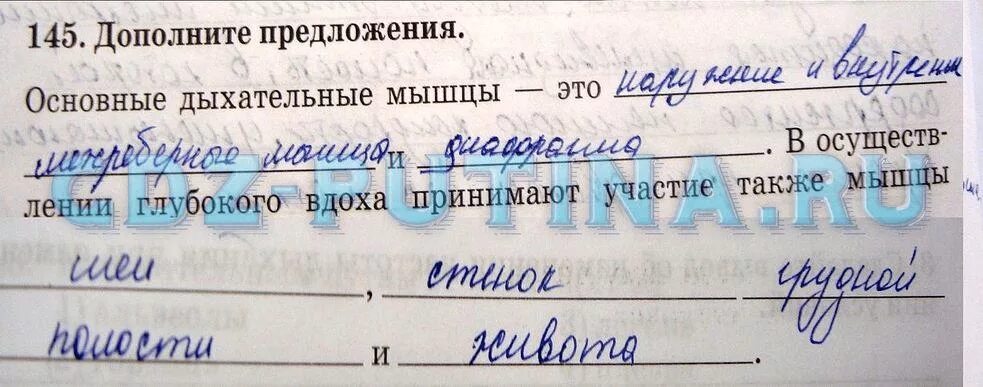 145. Дополните предложения.
Основные дыхательные мышцы — это наружние и внутрение
межреберные мышцы и диафрагма. В осуществ-
лении глубокого вдоха принимают участие также мышцы
шеи, стенок грудной
полости и живота.
GDZ-PUTINA.RU